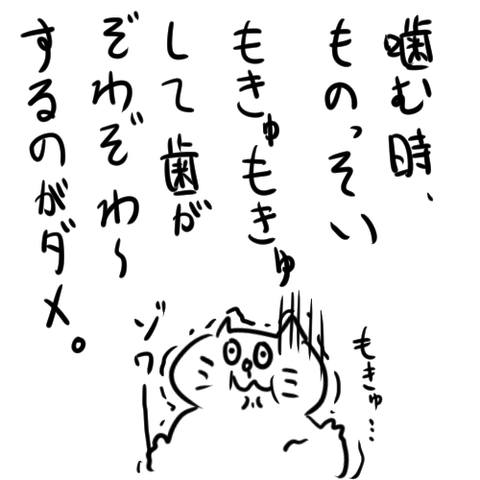 噛む時、
ものっそい
もきゅもきゅ
して歯が
ぞわぞわ～
するのがダメ。
もきゅ…
ゾワー